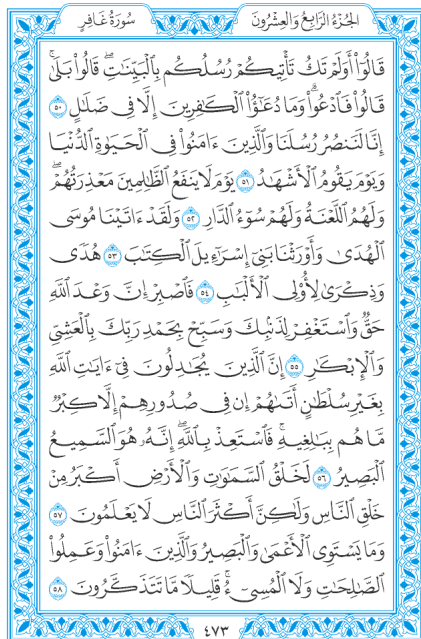 الجزء الرابع والعشرون سورة غافر
قَالُوٓاْ أَوَلَمۡ تَكُ تَأۡتِيكُمۡ رُسُلُكُم بِٱلۡبَيِّنَٰتِۖ قَالُواْ بَلَىٰۚ
قَالُواْ فَٱدۡعُواْۗ وَمَا دُعَٰٓؤُاْ ٱلۡكَٰفِرِينَ إِلَّا فِي ضَلَٰلٍ ٥٠
إِنَّا لَنَنصُرُ رُسُلَنَا وَٱلَّذِينَ ءَامَنُواْ فِي ٱلۡحَيَوٰةِ ٱلدُّنۡيَا
وَيَوۡمَ يَقُومُ ٱلۡأَشۡهَٰدُ ٥١ يَوۡمَ لَا يَنفَعُ ٱلظَّٰلِمِينَ مَعۡذِرَتُهُمۡۖ
وَلَهُمُ ٱللَّعۡنَةُ وَلَهُمۡ سُوٓءُ ٱلدَّارِ ٥٢ وَلَقَدۡ ءَاتَيۡنَا مُوسَى
ٱلۡهُدَىٰ وَأَوۡرَثۡنَا بَنِيٓ إِسۡرَٰٓءِيلَ ٱلۡكِتَٰبَ ٥٣ هُدٗى
وَذِكۡرَىٰ لِأُوْلِي ٱلۡأَلۡبَٰبِ ٥٤ فَٱصۡبِرۡ إِنَّ وَعۡدَ ٱللَّهِ
حَقّٞ وَٱسۡتَغۡفِرۡ لِذَنۢبِكَ وَسَبِّحۡ بِحَمۡدِ رَبِّكَ بِٱلۡعَشِيِّ
وَٱلۡإِبۡكَٰرِ ٥٥ إِنَّ ٱلَّذِينَ يُجَٰدِلُونَ فِيٓ ءَايَٰتِ ٱللَّهِ
بِغَيۡرِ سُلۡطَٰنٍ أَتَىٰهُمۡ إِن فِي صُدُورِهِمۡ إِلَّا كِبۡرٞ
مَّا هُم بِبَٰلِغِيهِۚ فَٱسۡتَعِذۡ بِٱللَّهِۖ إِنَّهُۥ هُوَ ٱلسَّمِيعُ
ٱلۡبَصِيرُ ٥٦ لَخَلۡقُ ٱلسَّمَٰوَٰتِ وَٱلۡأَرۡضِ أَكۡبَرُ مِنۡ
خَلۡقِ ٱلنَّاسِ وَلَٰكِنَّ أَكۡثَرَ ٱلنَّاسِ لَا يَعۡلَمُونَ ٥٧
وَمَا يَسۡتَوِي ٱلۡأَعۡمَىٰ وَٱلۡبَصِيرُ وَٱلَّذِينَ ءَامَنُواْ وَعَمِلُواْ
ٱلصَّٰلِحَٰتِ وَلَا ٱلۡمُسِيٓءُۚ قَلِيلٗا مَّا تَتَذَكَّرُونَ ٥٨
٤٧٣